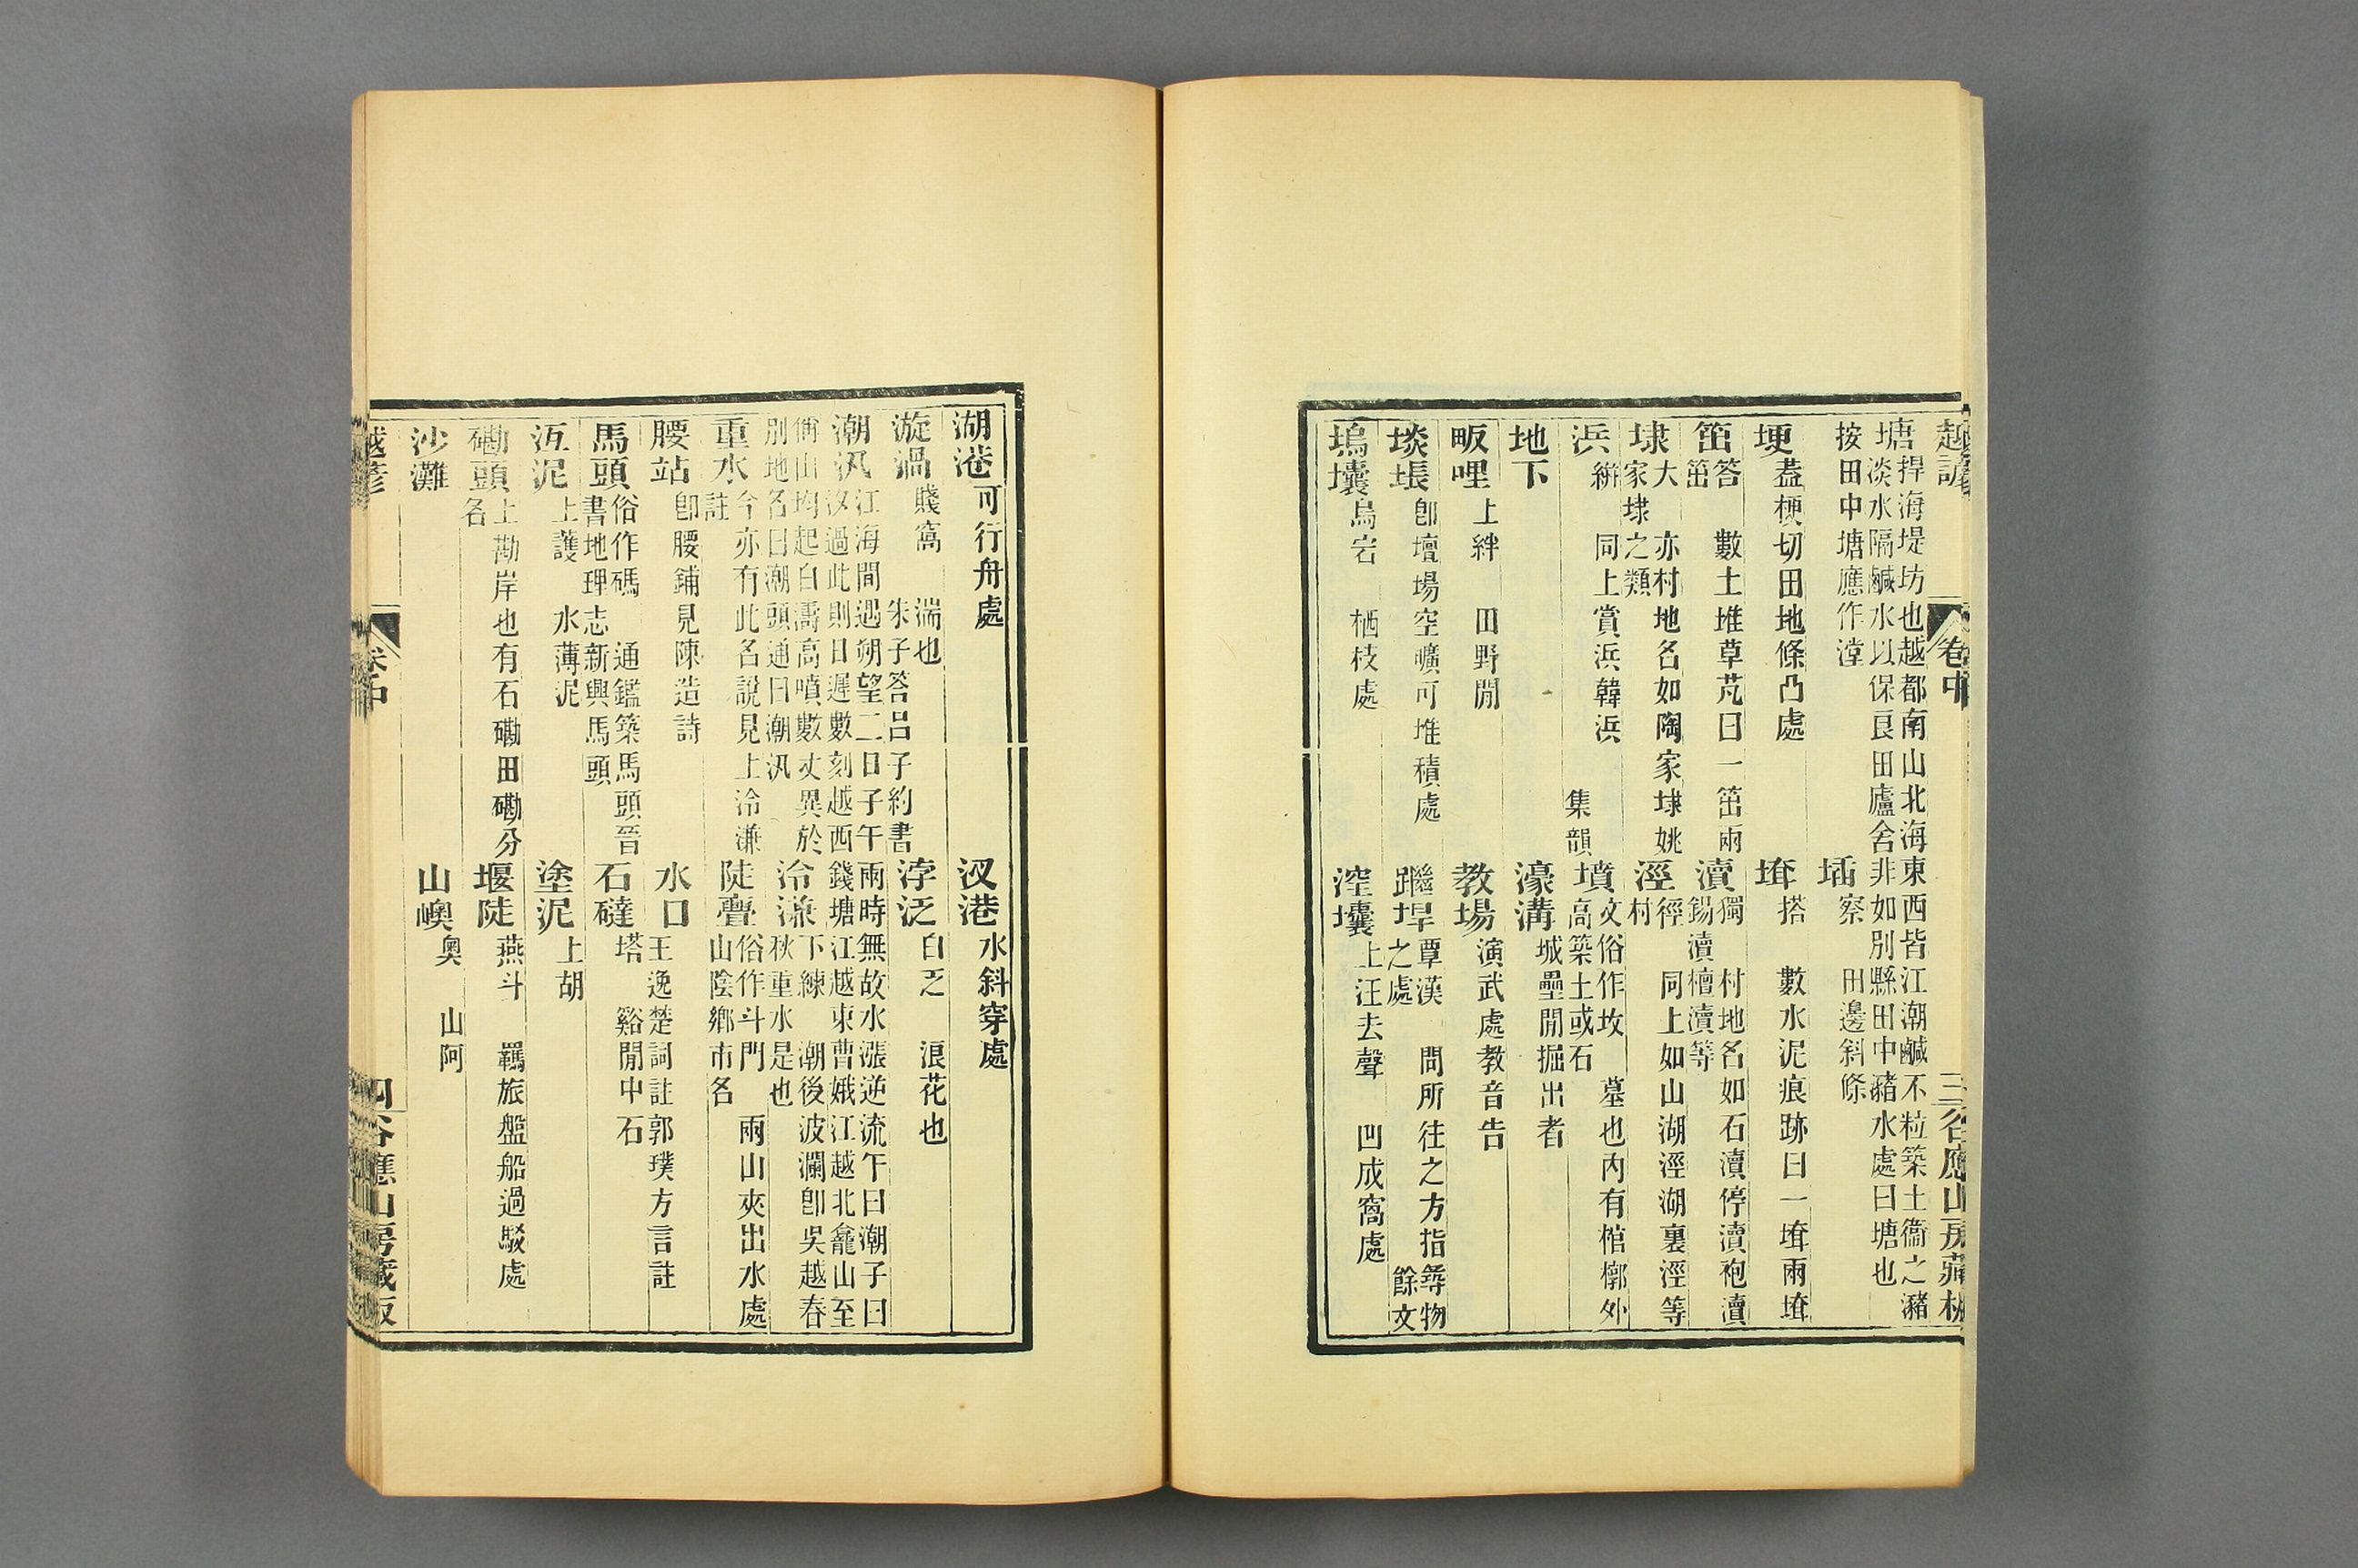 越諺
卷中
三
谷應山房藏板
塘捍海堤坊也越都南山北海東西皆江潮鹹不粒築土衞之瀦
淡水隔鹹水以保良田廬舍非如別縣田中瀦水處曰塘也
按田中塘應作漟
㙮察 田邊斜條
埂葢梗切田地條凸處
㙮搭 數水泥痕跡曰一㙮兩㙮
笛答 數土堆草芃曰一笛兩
笛
瀆獨 村地名如石瀆停瀆袍瀆
錫瀆檀瀆等
埭大 亦村地名如陶家埭姚
家埭之類
涇徑 同上如山湖涇湖裏涇等
村
浜絣 同上賞浜韓浜 集韻
墳文俗作坟 墓也內有棺槨外
高築土或石
地下
濠溝城壘開掘出者
畈哩上絆 田野閒
教場演武處教音告
埮埕卽壇場空曠可堆積處
躧垾覃漢 問所往之方指尋物
之處 餘文
塢壤烏岩 栖枝處
滢壤上汪去聲 凹成窩處
湖港可行舟處
汊港水斜穿處
漩渦賤窩 湍也
朱子答呂子約書
浡泛白乏 浪花也
潮汛江海間遇朔望二日子午兩時無故水漲逆流午曰潮子曰
汐過此則日遲數刻越西錢塘江越東曹娥江越北龕山至
俏山均起白濤高噴數丈異於
別地名曰潮頭通曰潮汛
泠溓下練 潮後波瀾卽吳越春
秋重水是也
重水今亦有此名說見上泠溓
註
陡亹俗作斗門 兩山夾出水處
山陰鄉市名
腰站卽腰鋪見陳造詩
水口王逸楚詞註郭璞方言註
馬頭俗作碼 通鑑築馬頭晉
書地理志新興馬頭
石磋塔 谿閒中石
沍泥上護 水薄泥
塗泥上胡
磡頭上勘岸也有石磡田磡分
名
堰陡燕斗 羈旅盤船過駁處
沙灘
山嶴奧 山阿
越諺
卷中
四
谷應山房藏板